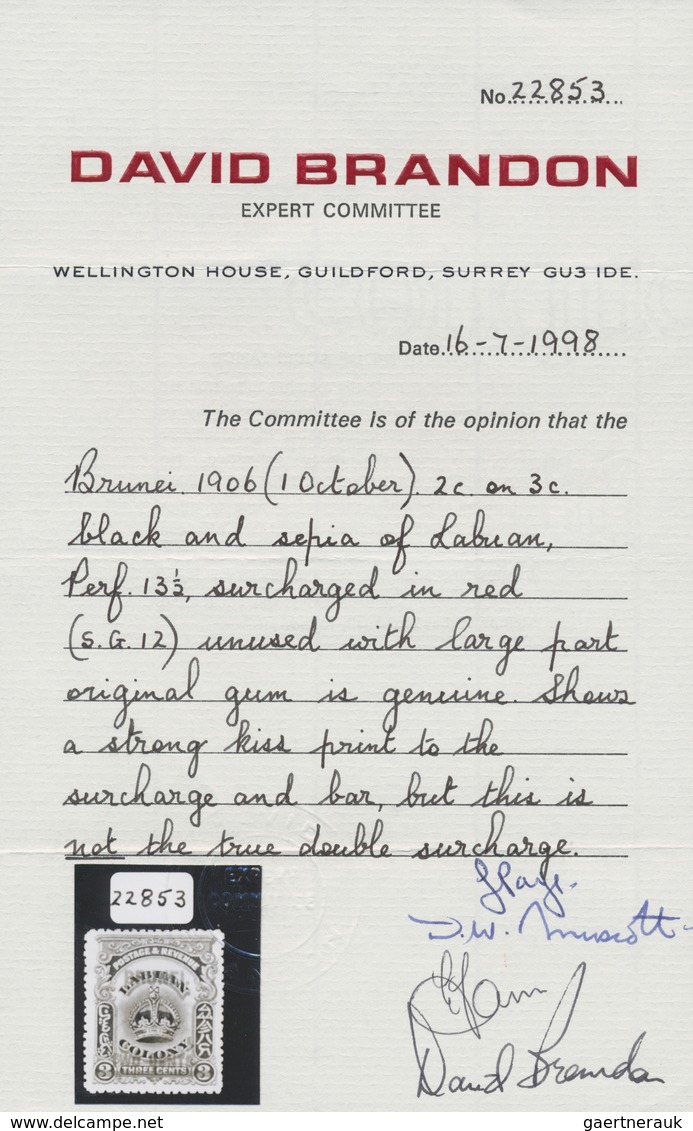 No. 22853
DAVID BRANDON
EXPERT COMMITTEE
WELLINGTON HOUSE, GUILDFORD, SURREY GU3 1DE.
Date 16-7-1998
The Committee is of the opinion that the
Brunei. 1906 (1 October). 2c. on 3c.
black and sepia of Labuan,
Perf. 13½, surcharged in red
(S.G.12) unused with large part
original gum is genuine. Shows
a strong kiss print to the
surcharge and bar, but this is
not the true double surcharge.
22853
POSTAGE & REVENUE
LABUAN
COLONY
3 THREE CENTS 3
David Brandon
gaertnerauk